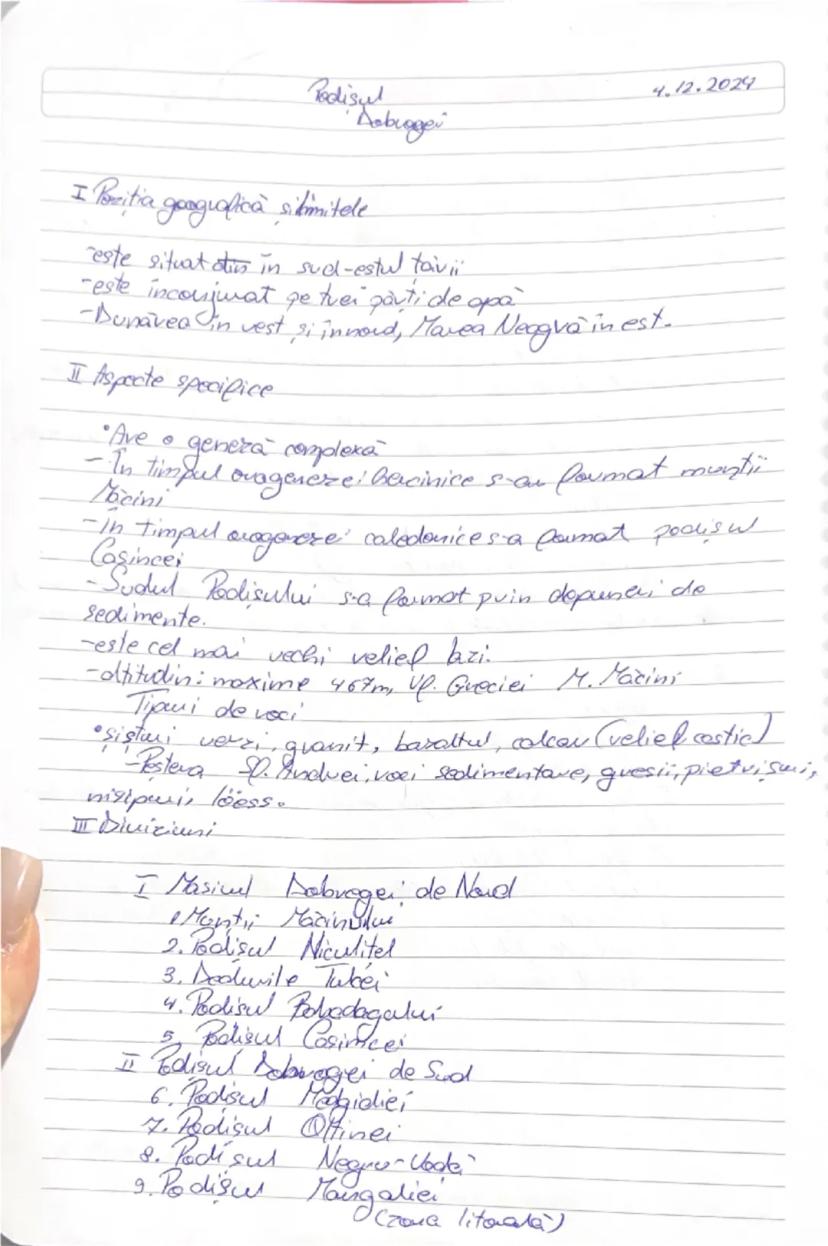 Podișul
Dobrogei
4.12.2024
I Poziția geografică și limitele
-este situat din în sud-estul țării
-este înconjurat pe trei părți de apă
-Dunărea în vest și în nord, Marea Neagră în est.
II Aspecte specifice
•Are o geneză complexă
- În timpul orogenezei hercinice s-au format munții
Măcini
-în timpul orogenezei caledonice s-a format podișul
Casimcei
-Sudul Podișului s-a format prin depuneri de
sedimente.
-este cel mai vechi relief azi.
-altitudini maxime 467m, Vf. Greciei M. Măcini
Tipuri de roci
•șisturi verzi, granit, bazaltul, calcar (relief castic)
-Peștera Sf. Andrei, roci sedimentare, gresii, pietrișuri,
nisipuri, löess.
III Diviziuni
I Masivul Dobrogei de Nord
1 Munții Măcinului
2. Podișul Niculițel
3. Dealurile Tulcei
4. Podișul Babadagului
5. Podișul Casimcei
II Podișul Dobrogei de Sud
6. Podișul Medgidiei
7. Podișul Oltinei
8. Podișul Negru-Vodă
9. Podișul Mangaliei
(zona litorală)